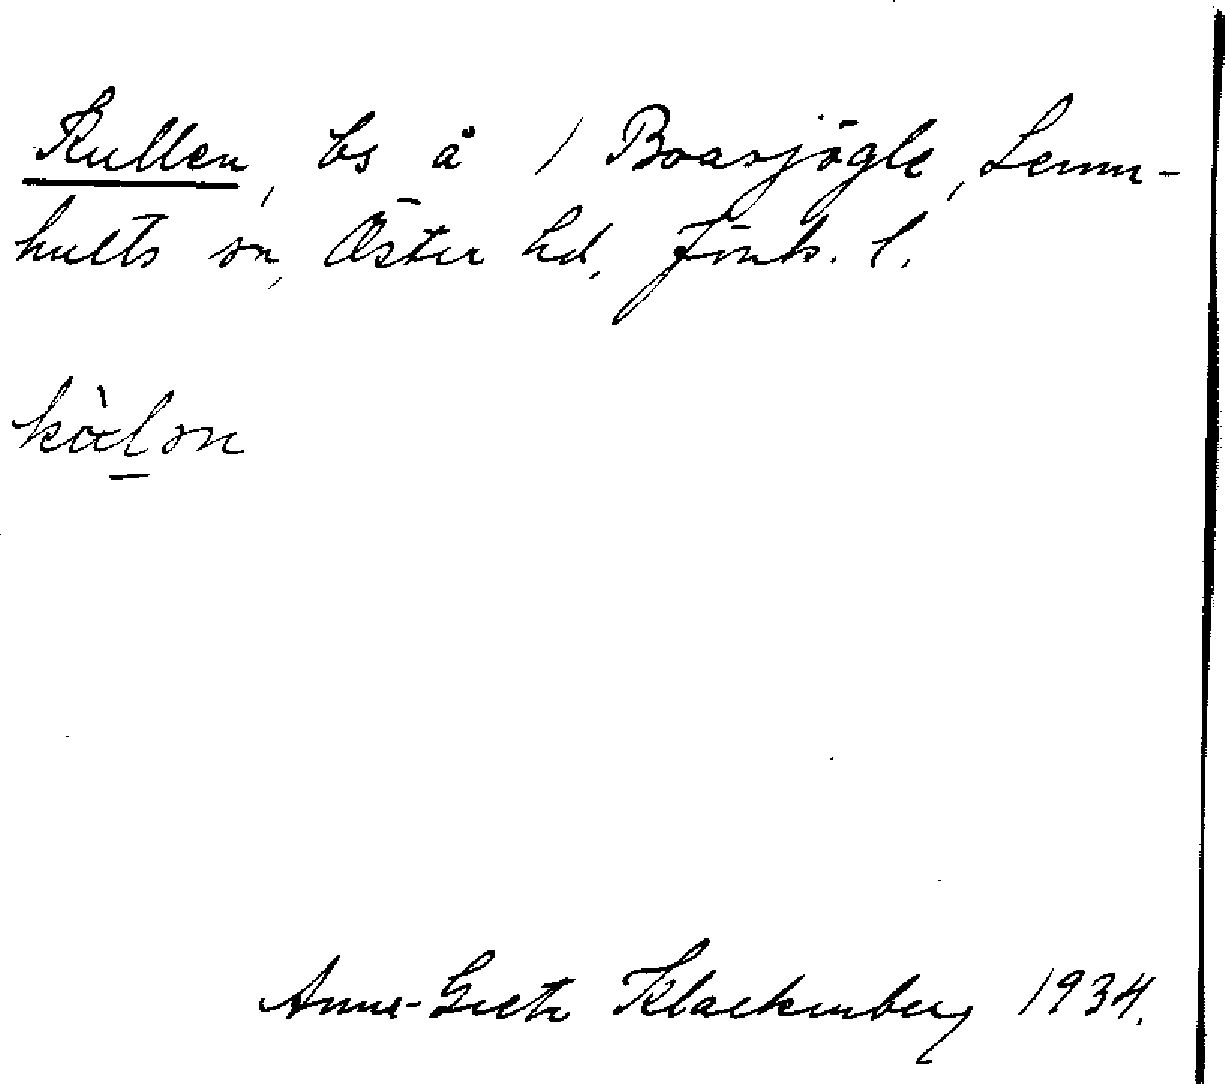 Kullen, bs å 1 Boarsjögle, Lemn-
hults sn, Öster hd, Jönk. l.
Anna-Greta Klackenberg 1934.